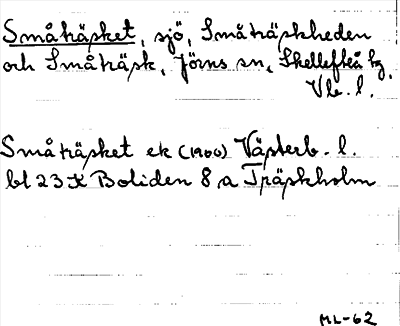 Småträsket, sjö, Småträskheden
och Småträsk, Jörns sn, Skellefteå tg,
Vb. l.
Småträsket ek (1900) Västerb. l.
bl 23 K Boliden 8 a Träskholm
ML-62